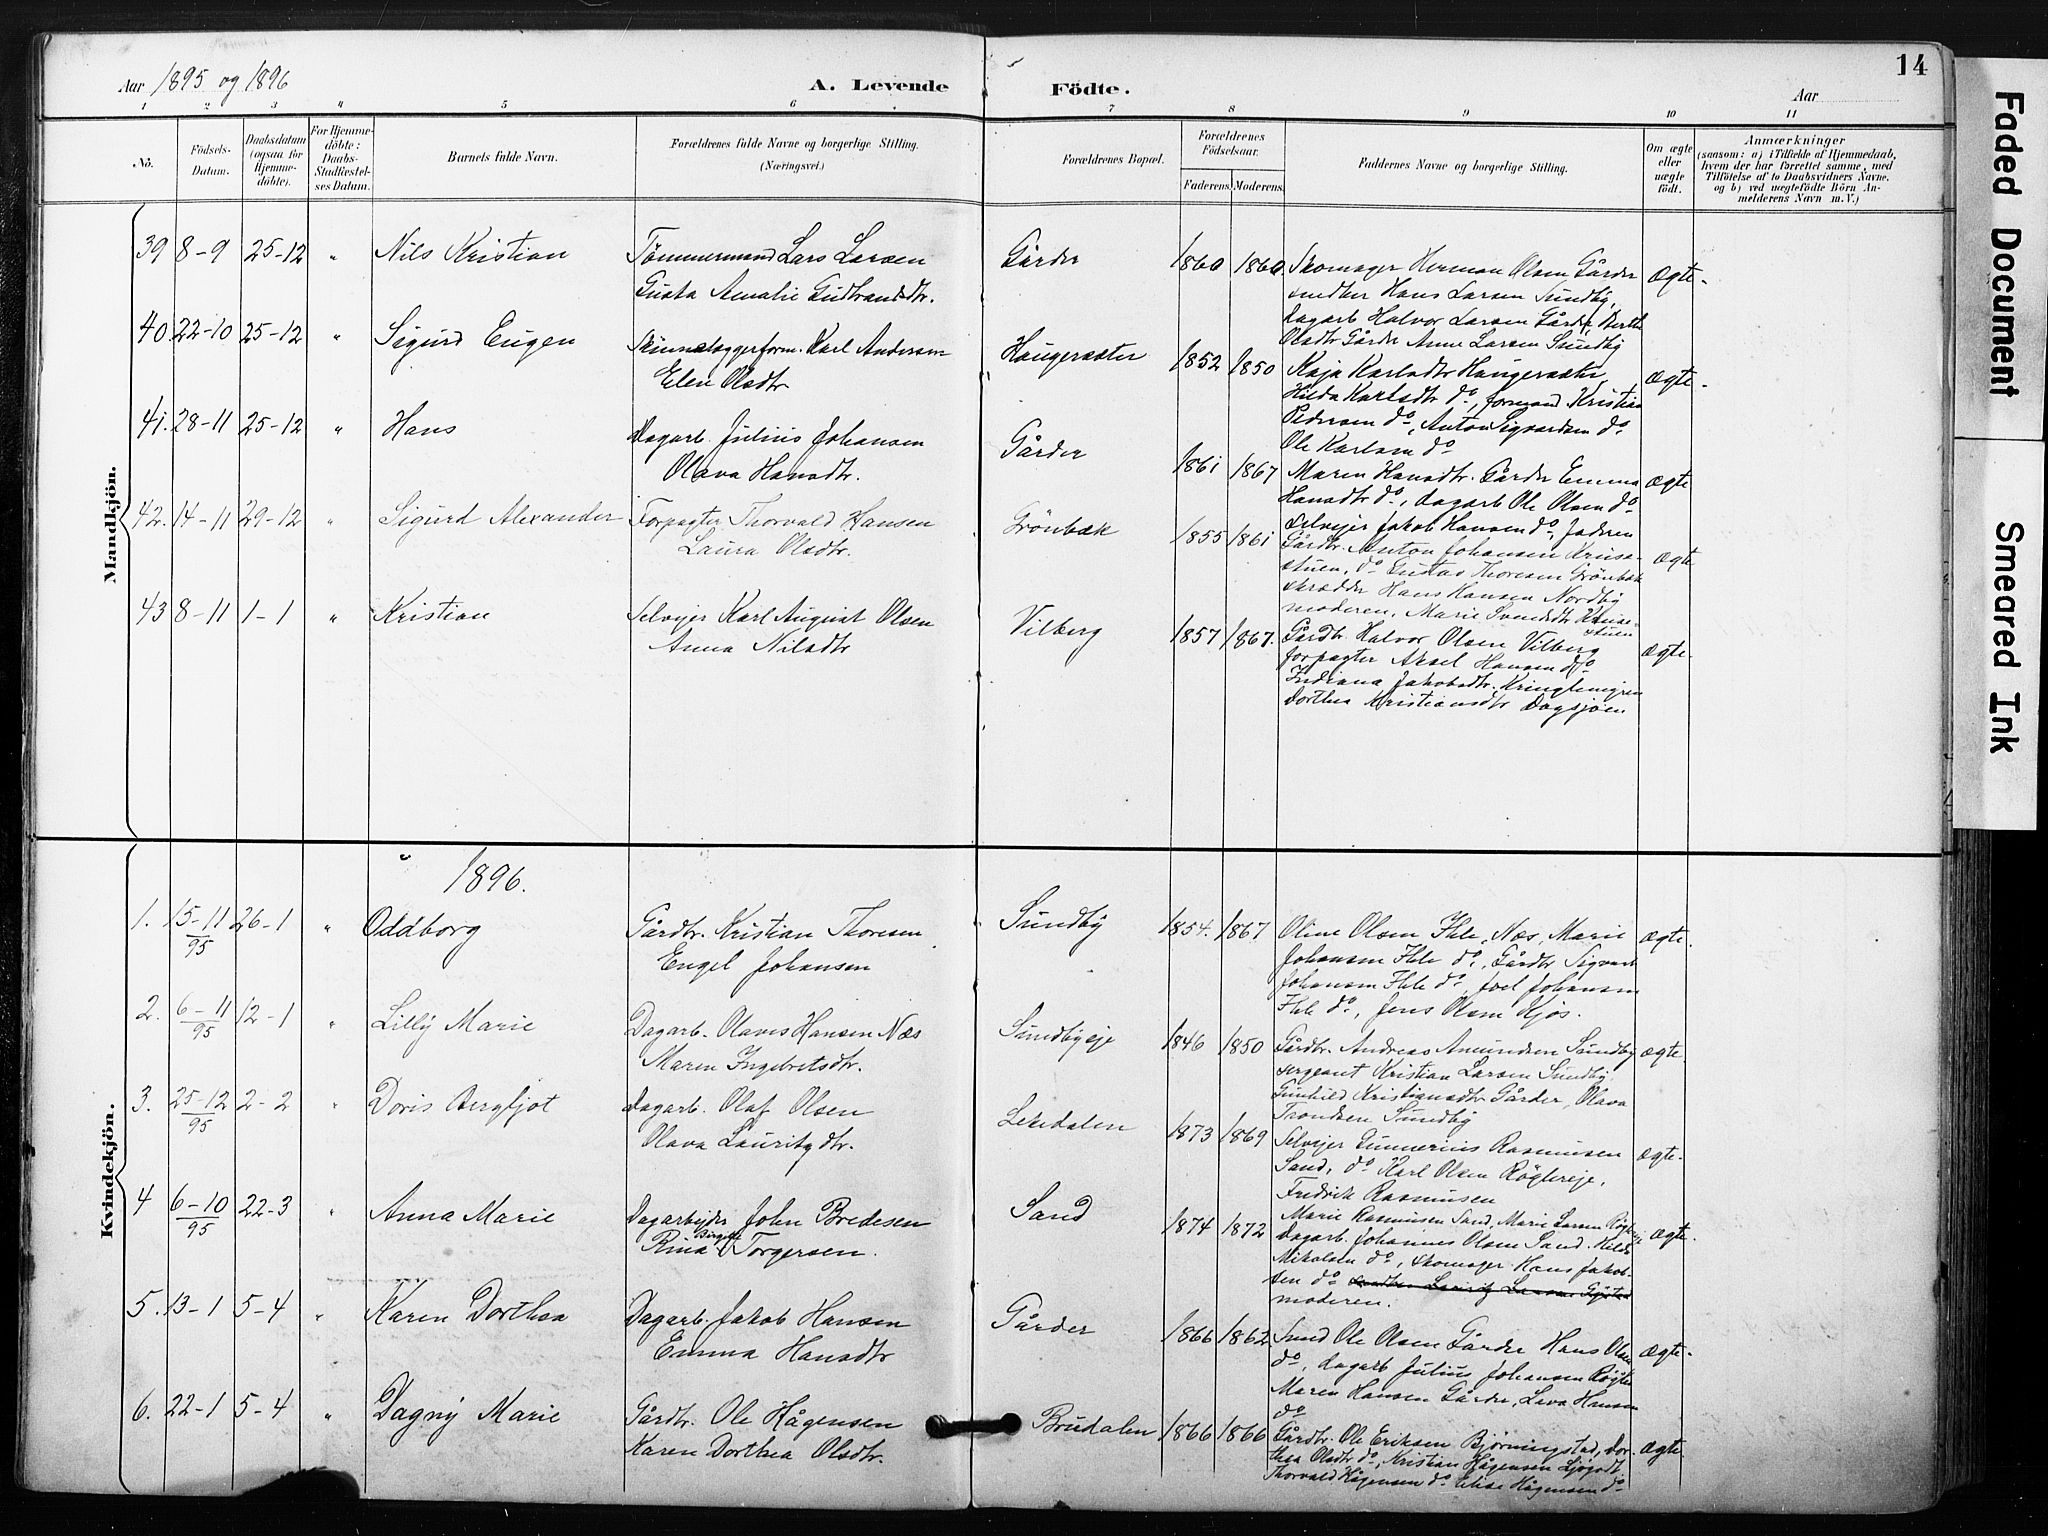 14
Aar 1895 og 1896
A. Levende Födte.
Aar
1 2 3 4 5 6 7 8 9 10 11
No.
Födsels-Datum.
Daabsdatum (ogsaa for Hjemme-döbte).
For Hjemme-döbte: Daabs-Stadfæstel-ses Datum.
Barnets fulde Navn.
Forældrenes fulde Navne og borgerlige Stilling.
(Næringsvei.)
Forældrenes Bopæl.
Forældrenes Födselsaar.
Faderens. Moderens.
Faddernes Navne og borgerlige Stilling.
Om ægte eller uægte födt.
Anmærkninger
(saasom: a) i Tilfælde af Hjemmedaab,
hvem der har forrettet samme, med
Tilföielse af to Daabsvidners Navne,
og b) ved uægtefödte Börn An-
melderens Navn m. V.)
Mandkjön.
39 8-9 25-12 " Nils Kristian
Tømmermand Lars Larsen
Gusta Amalie Gudbrandsdtr.
Gårder 1860 1860
Skomager Herman Olsen Gårder
smedker Hans Larsen Sundby,
Dagarb Halvor Larsen Gårder, Berthe
Olsdtr Gårder Anne Larsen Sundby
Ægte.
40. 22-10 25-12 " Sigurd Eugen
Karl Andersen
Elen Olsdtr
Haugersæter 1852 1850
Kaja Karlsdtr Haugersæter,
Hilda Karlsdtr do, formand Kristian
Pedersen do, Anton Sigvardsen do
Ole Karlsen do
Ægte.
41. 28-11 25-12 " Hans
Dagarb. Julius Johansen
Olava Hansdtr.
Gårder 1861 1867
Maren Hansdtr. Gårder Emma
Hansdtr do, dagarb Ole Olsen do
Selvejer Jakob Hansen do, faderen
Ægte
42. 14-11 29-12 " Sigurd Alexander
Forpagter Thorvald Hansen
Laura Olsdtr.
Grönbæk 1855 1861
Gårdbr. Anton Johansen Kruse-
stuen, do Gustav Thoresen Grönbæk
skrædder Hans Hansen Nordby
moderen, Marie Svendsdtr Kruse-
stuen
Ægte
43 8-11 1-1 " Kristian
Selvejer Karl August Olsen
Anna Nilsdtr
Vilberg 1857 1867.
Gårdbr. Halvor Olsen Vilberg
forpagter Aksel Hansen do
Indiana Jakobsdtr.
Dorthea Kristiansdtr Dagsjøen
Ægte.
Kvindekjön.
1896.
1. 15-11 95 26-1 " Oddborg
Gårdbr. Kristian Thoresen
Engel Johansen
Sundby 1854. 1867
Oline Olsen Ihle, Næs, Marie
Johansen Ihle do, Gårdbr Sigvart
Johansen Ihle do, Joel Johansen
Ihle do, Jens Olsen Kjos.
Ægte.
2. 6-11 95 12-1 " Lilly Marie
Dagarb. Olaves Hansen Næs
Maren Ingebretsdtr.
Sundbyeje 1846 1850
Gårdbr. Andreas Amundsen Sundby
sergeant Kristian Larsen Sundby,
Gunhild Kristiansdtr Gårder, Olava
Trondsen Sundby
Ægte.
3. 25-12 95 2-2 " Doris Bergljot
Dagarb. Olaf Olsen
Olava Lauritzdtr.
Lekedalen 1873 1869
Selvejer Gunnerius Rasmusen
Sand, do Karl Olsen Røgtereje,
Fredrik Rasmusen
Marie Rasmusen Sand, Marie Larsen
Ægte.
4 6-10 95 22-3 " Anna Marie
Dagarbejder John Bredesen
Rina Birgitte Torgersen.
Sand 1874 1872
Dagarb. Johannes Olsen Sand. Hilda
Mikalsen do, skomager Hans Jakob-
sen do
moderen.
Ægte.
5. 13-1 5-4 " Karen Dorthea
Dagarb. Jakob Hansen
Emma Hansdtr
Gårder 1866 1862
Smed Ole Olsen Gårder Hans Olsen
do, dagarb Julius Johansen
Maren Hansen Gårder, Lava Hansen
do
Ægte.
6. 22-1 5-4 " Dagny Marie
Gårdbr. Ole Hågensen
Karen Dorthea Olsdtr.
Brudalen 1866 1866
Gårdbr. Ole Eriksen Bjørningstad, Dor-
thea Olsdtr do, Kristian Hågensen Ljøgodt
Thorvald Hågensen do. Elise Hågensen do
Ægte.
Faded Document
Smeared Ink